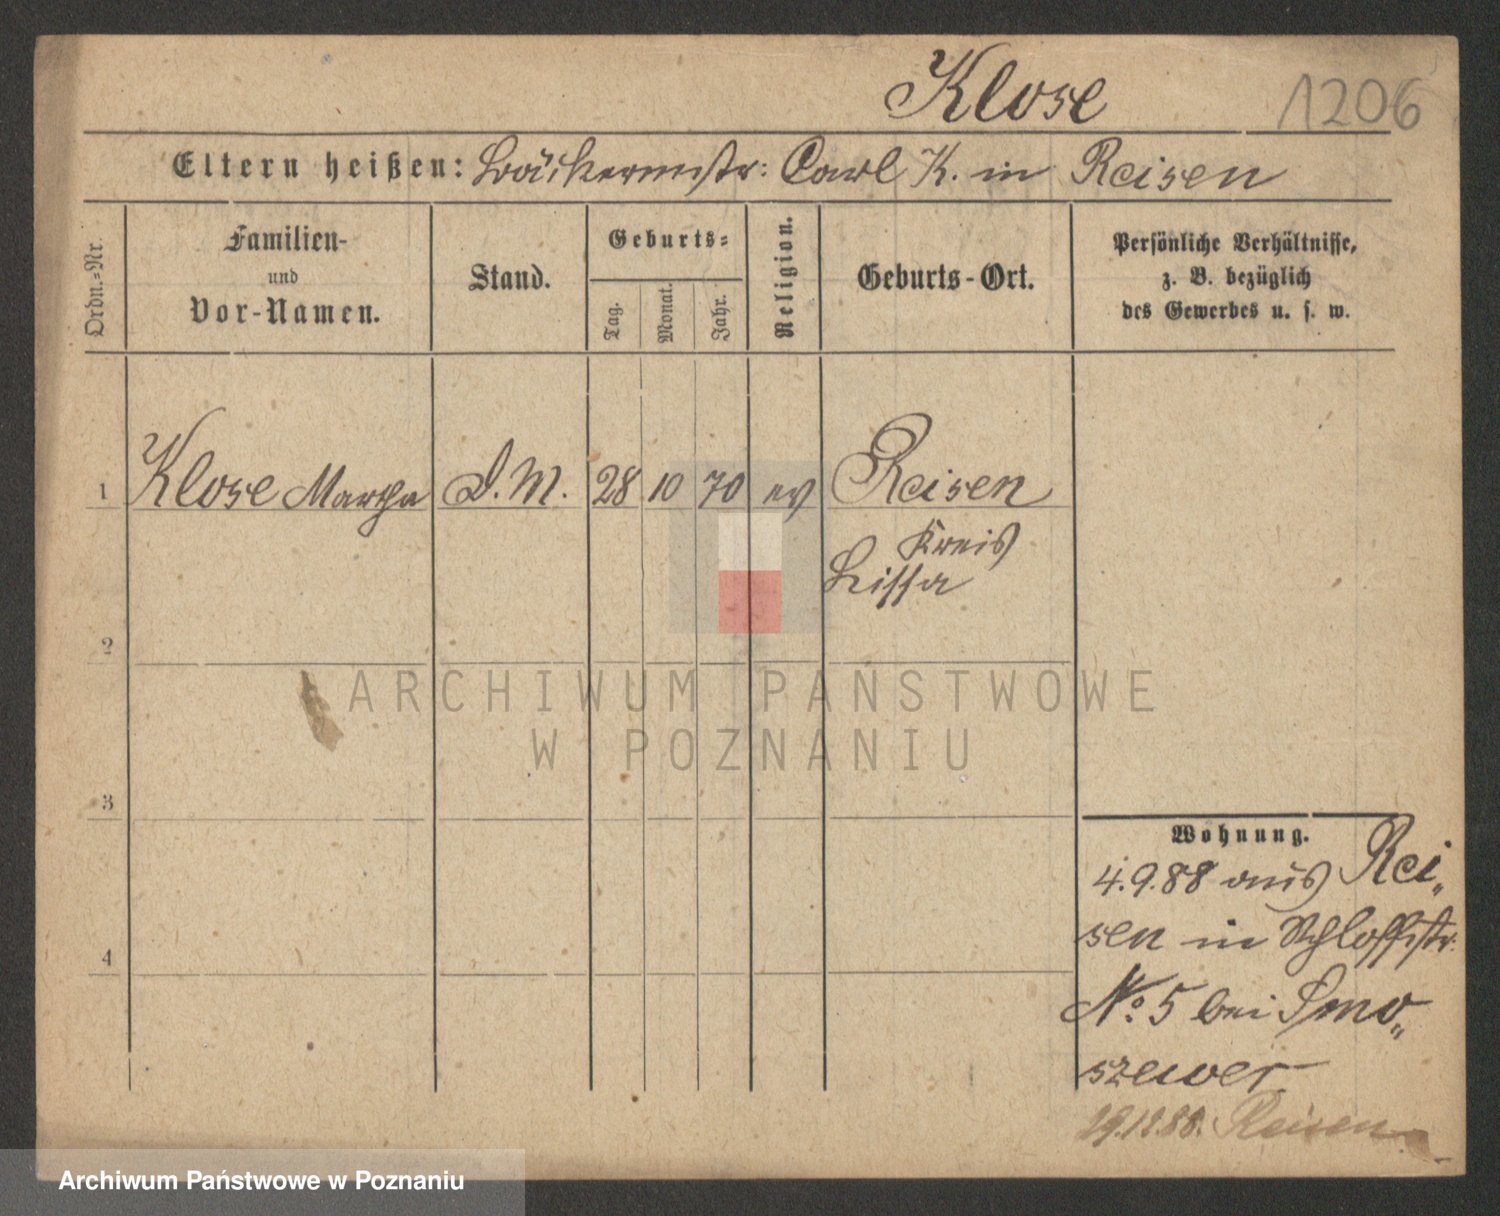 Klose 1206
Eltern heißen: Bäckermstr: Carl K. in Reisen
Ordn.-Nr.
Familien-
und
Vor-Namen.
Stand.
Geburts-
Tag.
Monat.
Jahr.
Religion.
Geburts-Ort.
Persönliche Verhältnisse,
z. B. bezüglich
des Gewerbes u. s. w.
1 Klose Martha D. M. 28 10 70 ev Reisen
Kreis
Lissa
2
3
4
Wohnung.
4.9.88 aus Rei„
sen in Schloßstr:
No. 5 bei Smo„
szewer
29.12.88. Reisen
ARCHIWUM PAŃSTWOWE
W POZNANIU
Archiwum Państwowe w Poznaniu